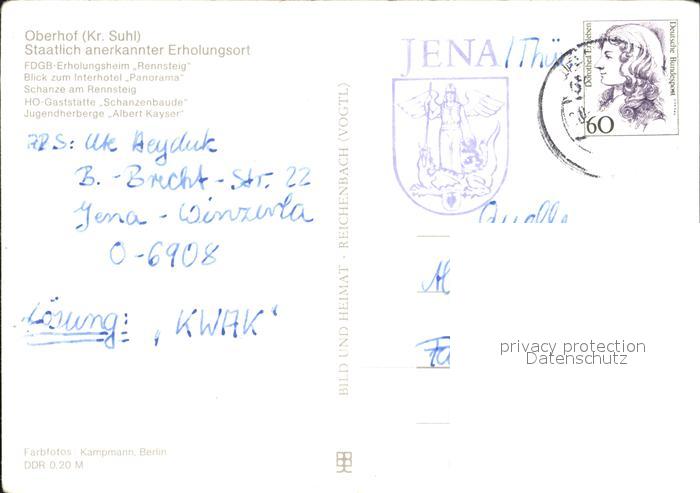 Oberhof (Kr. Suhl)
Staatlich anerkannter Erholungsort
FDGB-Erholungsheim „Rennsteig“
Blick zum Interhotel „Panorama“
Schanze am Rennsteig
HO-Gaststätte „Schanzenbaude“
Jugendherberge „Albert Kayser“
Ute Heyduk
B.-Brecht-Str. 22
Jena - Winzerla
O-6908
Lösung: „KWAK“
Farbfotos: Kampmann, Berlin
DDR 0,20 M
BILD UND HEIMAT · REICHENBACH (VOGTL)
JENA/Thü
Dorothea Erxleben
Deutsche Bundespost
60
privacy protection
Datenschutz